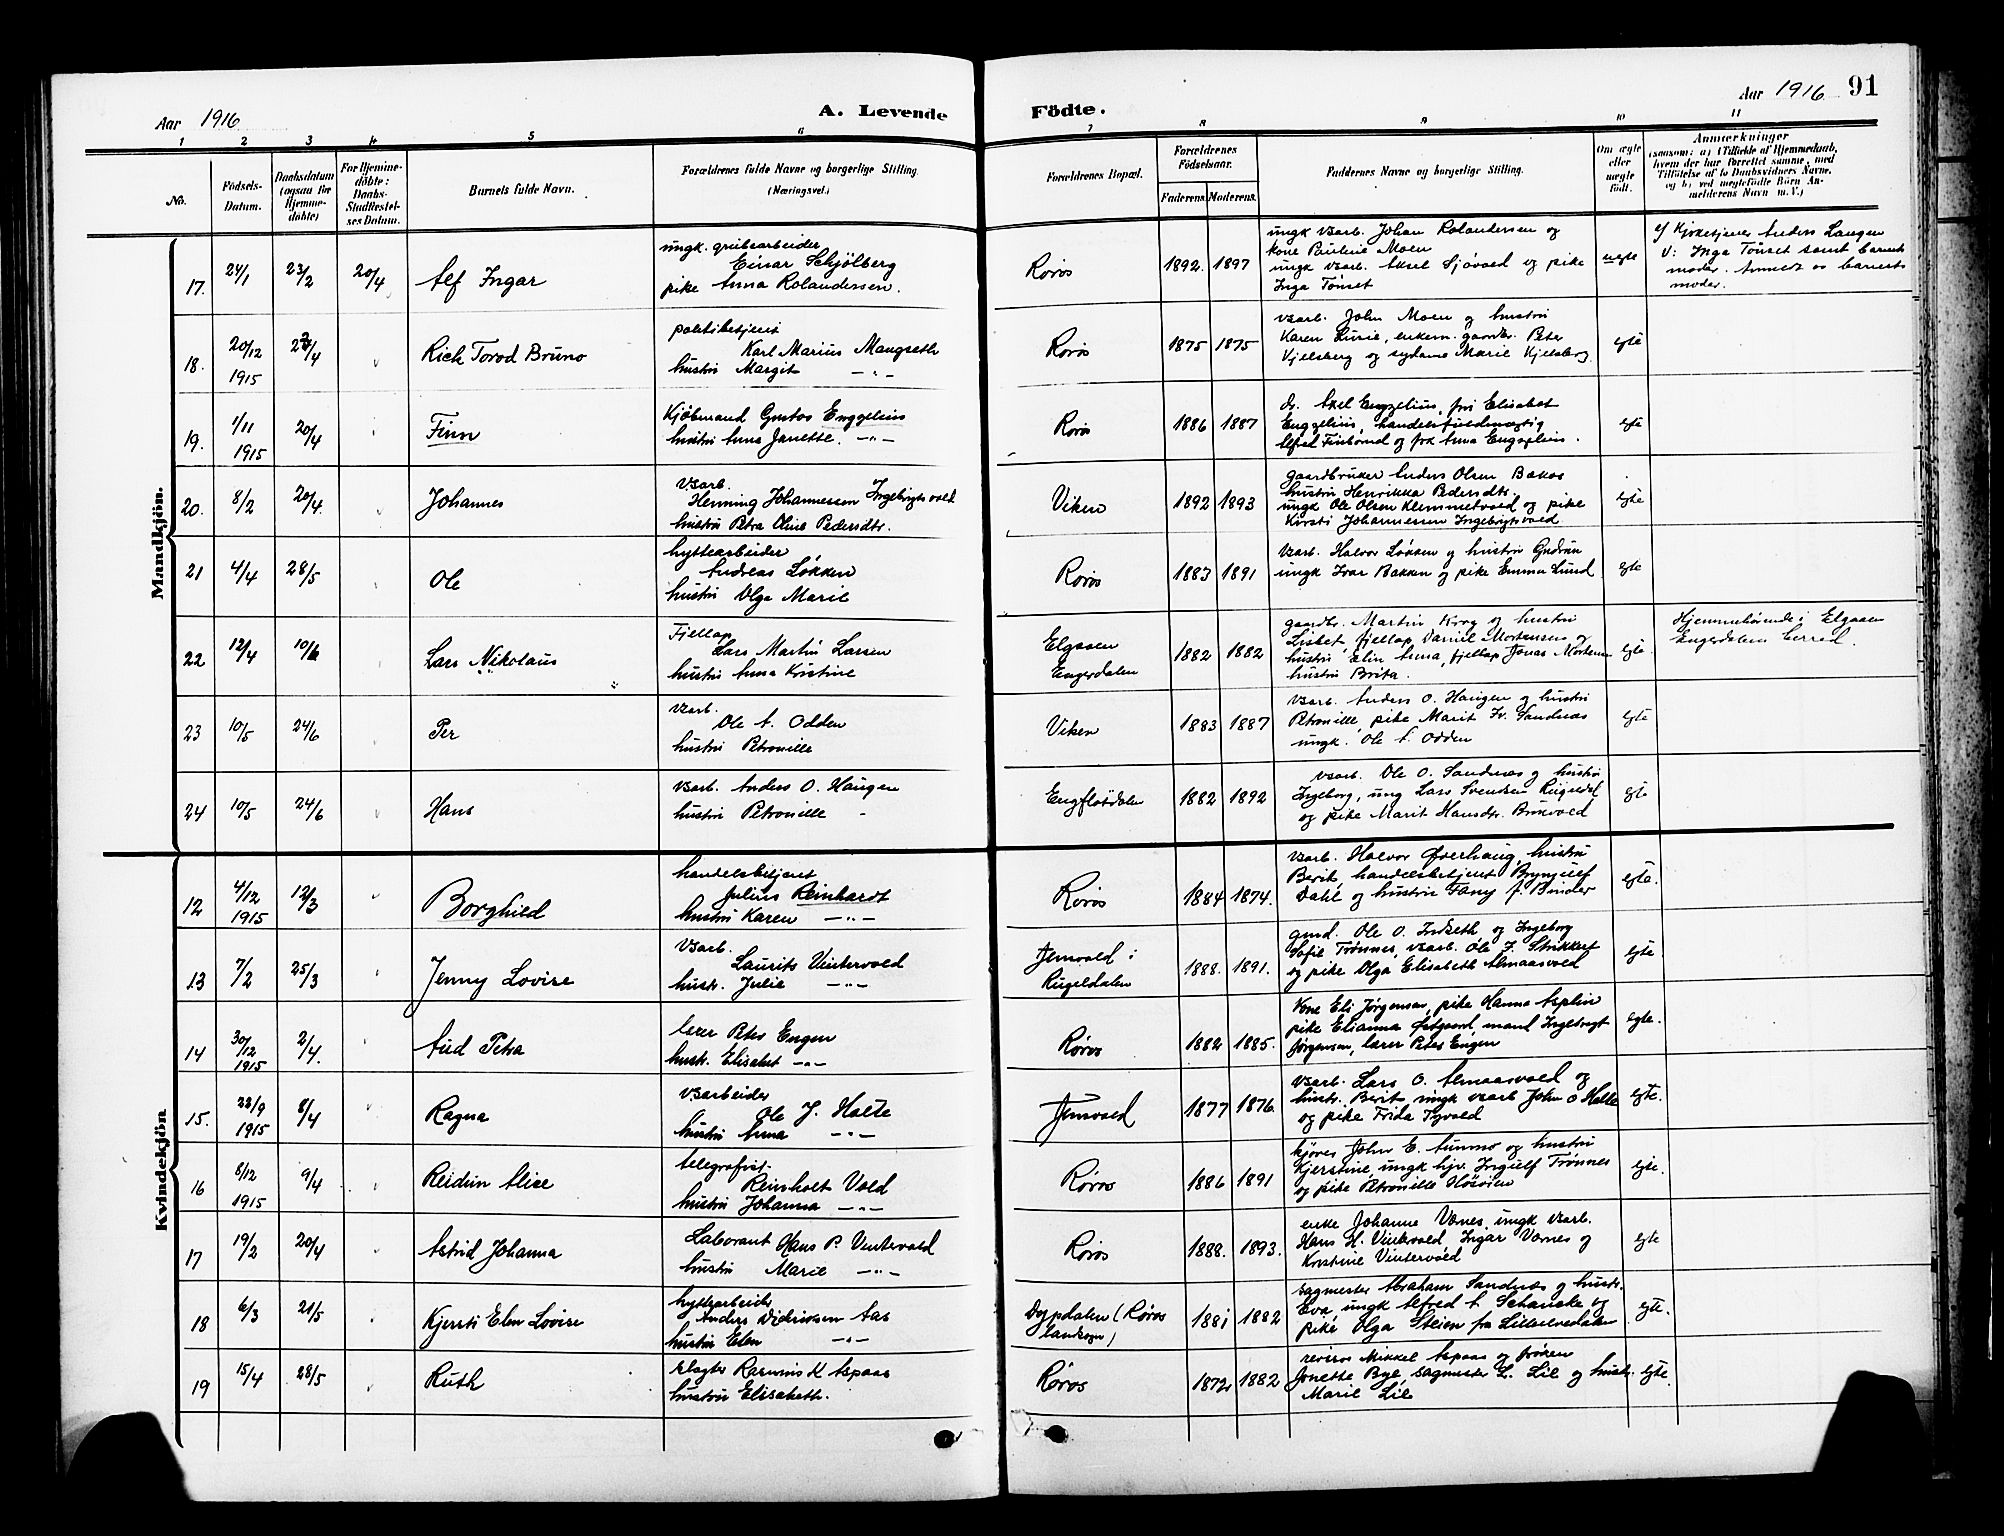 Aar 1916
A. Levende
Födte.
Aar 1916
91
1 2 3 4 5 6 7 8 9 10 11
No.
Födsels-
Datum.
Daabsdatum
(ogsaa for
Hjemme-
döbte)
For Hjemme-
döbte:
Daabs-
Stadfæstel-
ses Datum.
Barnets fulde Navn.
Forældrenes fulde Navne og borgerlige Stilling.
(Næringsvei.)
Forældrenes Bopæl.
Forældrenes
Födselsaar.
Faderens. Moderens.
Faddernes Navne og borgerlige Stilling.
Om ægte
eller
uægte
födt.
Anmærkninger
(saasom: a) i Tilfælde af Hjemmedaab,
hvem der har forrettet samme, med
Tilföielse af to Daabsvidners Navne,
og b) ved uægtefödte Börn An-
melderens Navn m. V.)
Mandkjön.
17. 24/1 23/2 20/4 Alf Ingar
ungk. grubearbeider
Einar Schjölberg
pike Anna Rolandessen.
Røros 1892. 1897
ungk varb. Johan Rolandersen og
kone Pauline Moen
ungk varb. Aksel Sjövold og pike
Inga Tønset
uegte
a/ Kirketjener Anders Langen
V: Inga Tönset samt barnets
moder. Anmeldt av barnets
moder.
18. 20/12 1915 2/4 Rich Torod Bruno
politibetjent
Karl Marius Mangseth
hustru Margit -"-
Røros 1875 1875
varb. John Moen og hustru
Karen Lusie, enkem. gaardbr. Peter
Kjelsberg og sydame Marie Kjelsberg.
egte
19. 1/11 1915 20/4 Finn
Kjöbmand Gustav Engzelius
hustru Anna Janette. -"-
Røros 1886 1887
dr. Axel Engzelius, fru Elisabet
Engzelius, handelsfuldmægtig
Alfred Finbonud og frk Anna Engzelius.
egte
20. 8/2 20/4. Johannes
varb.
Henning Johannessen Ingebrigtsvold
hustru Petra Oline Pedersdtr.
Viken 1892 1893
gaardbruker Anders Olsen Bakos
hustru Henrikka Pedersdtr.
ungk Ole Olsen Klemmetvold og pike
Kirsti Johannessen Ingebrigtsvold
egte
21 4/4 28/5 Ole
hyttearbeider
Andreas Løkken
hustru Olga Marie
Røros 1883 1891
varb. Halvor Løkken og hustru Gudrun
ungk Ivar Bakken og pike Emma Lund
egte
22 12/4 10/6 Lars Nikolaus
Fjellap
Lars Martin Larsen
hustru Anna Kristine
Elgaaen
Engerdalen
1882 1882
gaardbr. Martin Krog og hustru
Lisbet, fjellap Daniel Mortensen og
hustru Elin Anna, fjellap Jonas Mortensen
hustru Brita.
egte
Hjemmehörende i Elgaaen
Engerdalen
23 10/5 24/6 Per
varb.
Ole A. Odden
hustru Petronille
Viken 1883 1887
varb. Anders O. Haugen og hustru
Petronille, pike Marit Iv. Sandnæs
ungk. Ole A. Odden
egte
24 10/5 24/6 Hans
varb. Anders O. Haugen
hustru Petronille
Engflotdalen 1882 1892
varb. Ole O. Sandnæs og hustru
Ingeborg, ung Lars Svendsen Rugeldal
og pike Marit Hansdtr. Brukvold
egte
Kvindekjön
12 4/12 1915 12/3 Borghild
handelsbetjent
Julius Reinhardt
hustru Karen -"-
Røros 1884 1874.
varb. Halvor Øverhaug, hustru
Berit, handelsbetjent Brynjulf
Dahl og hustru Fany J. Binder
egte.
13 7/2 25/3 Jenny Lovise
varb.
Laurits Vintervold
hustr. Julie -"-
Jensvold i
Rugeldalen
1888. 1891.
gmd. Ole O. Indseth og Ingeborg
Sofie Trønnes, varb. Ole J. Strikkert
og pike Olga Elisabeth Almaasvold
egte
14 30/12 1915 2/4. Aud Petra
lærer Peter Engen
hustr. Elisabet -"-
Røros 1882 1885.
Kone Eli Jørgensen, pike Hanna Asplin
pike Elianna Østgaard, mand Ingebrigt
Jørgensen, lærer Peter Engen
egte.
15. 23/9 1915 8/4 Ragna
varbeider
Ole J. Holte
hustru Anna -"-
Jensvold 1877 1876.
varb. Lars O. Almaasvold og
hustr. Berit, ungk varb John O Holte
og pike Frida Tyvold
egte.
16 8/12 1915 9/4 Reidun Alise
telegrafist.
Reinholt Vold
hustru Johanna -"-
Røros 1886 1891
kjører John E. Aunmo og hustru
Kjerstine, ungk hjv. Ingulf Trønnes
og pike Petronille Høsøien
egte.
17 19/2 20/4 Astrid Johanna
Laborant Hans P. Vintervold
hustru Marie -"-
Røros 1888. 1893.
enke Johanne Værnes, ungk varb.
Hans H. Vintervold Ingar Værnes og
Kristine Vintervold
egte
18 6/3 21/5 Kjersti Elen Lovise
hyttearbeider
Anders Didriksen Aas
hustru Elen -"-
Dypdalen (Røros
landsogn)
1881 1882
sagmester Abraham Sandnæs og hustr.
Eva, ungk Alfred A. Schancke og
pike Olga Steien fra Lilleelvedalen
egte.
19 15/4 28/5 Ruth
slagter Rasmus K Aspaas
hustru Elisabeth.
Røros 1872 1882
revisor Mikkel Aspaas og frøken
Jonette Bye, sagmester L. Lie og hustr.
Marie Lie
egte.